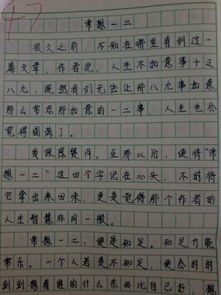 47
常想一二
很久之前，不知在哪里看到过一
篇文章，作者说，人生不如意事十之
八九，既然我们无法让那八九事如意，
那么常思那如意的一二事，人生也会
觉得圆满了。
我很感赞同，至那以后，便将“常
想一二”这四个字记在心头，不时将
它拿出来回味，更是觉得那个作者的
人生智慧非同一般。
常想一二，便是知足，知足方能
常乐，一个人若是不知足，便会时时
刻刻想着谁的什么东西比自己好，想